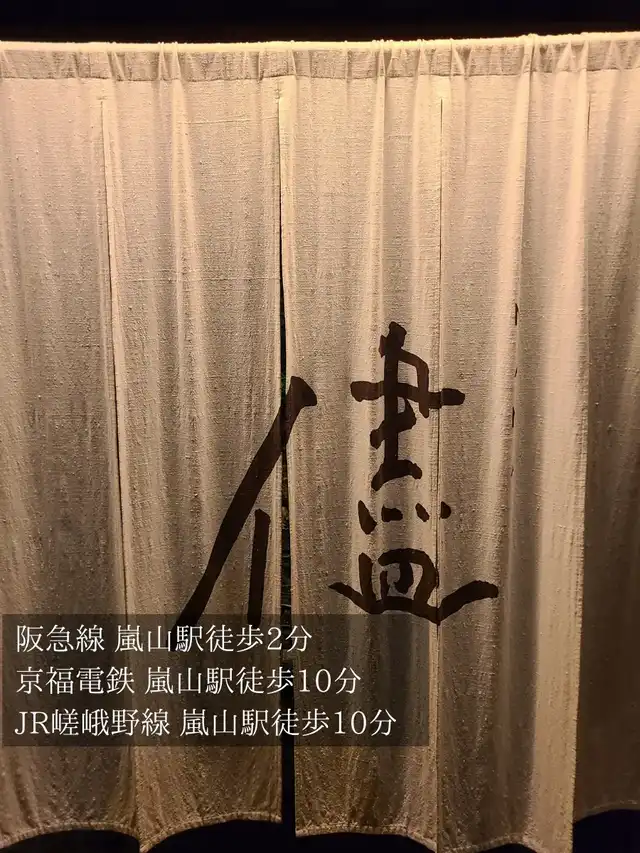 儘
阪急線 嵐山駅徒歩2分
京福電鉄 嵐山駅徒歩10分
JR嵯峨野線 嵐山駅徒歩10分